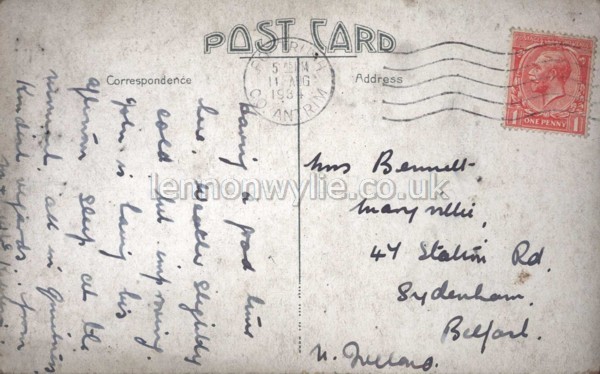 POST CARD
Correspondence
Address
PORTRUSH
11 AUG
CO. ANTRIM
ONE PENNY
Having a good time
here. Weather slightly
cold but improving
John is having his
afternoon sleep at the
moment.
Kindest regards from
Mrs Bennett.
Maryville,
47 Station Rd.
Sydenham.
Belfast.
N. Ireland.
lennonwylie.co.uk